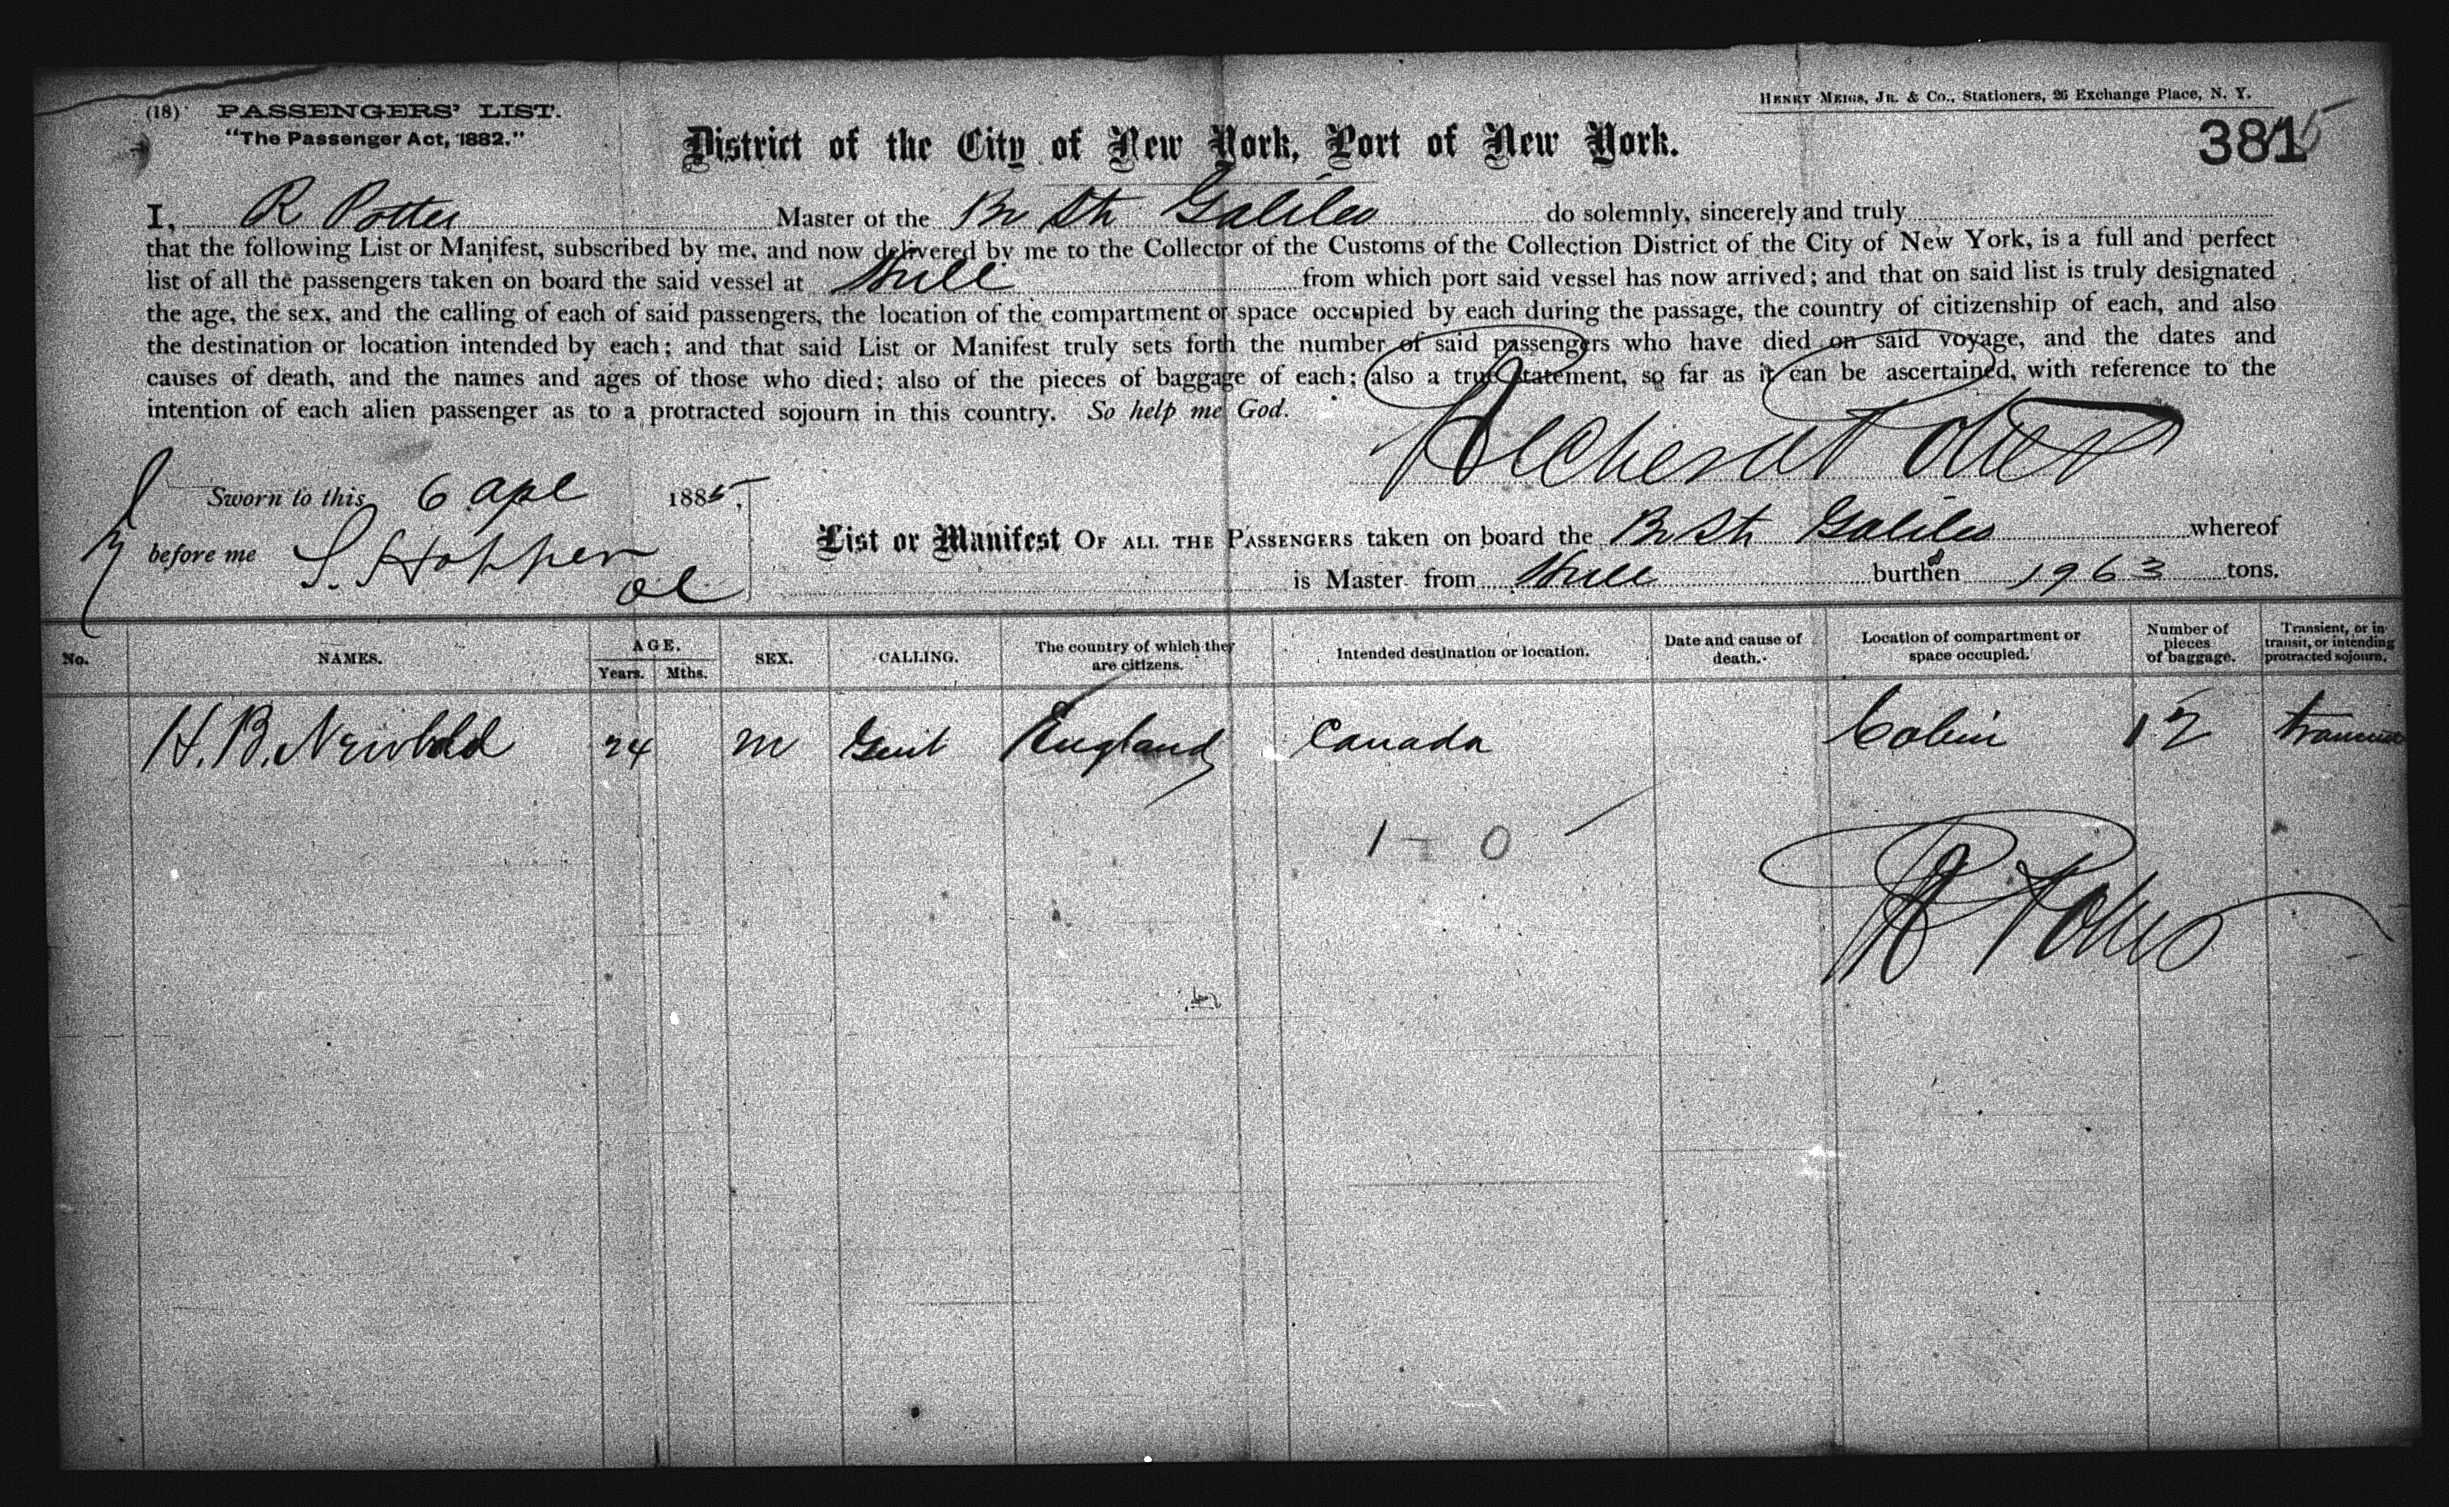 (18) PASSENGERS' LIST.
"The Passenger Act, 1882."
HENRY MEIGS, JR. & CO., Stationers, 26 Exchange Place, N. Y.
District of the City of New York, Port of New York.
381
I, R Potter Master of the Br Str Galileo do solemnly, sincerely and truly
that the following List or Manifest, subscribed by me, and now delivered by me to the Collector of the Customs of the Collection District of the City of New York, is a full and perfect
list of all the passengers taken on board the said vessel at Hull from which port said vessel has now arrived; and that on said list is truly designated
the age, the sex, and the calling of each of said passengers, the location of the compartment or space occupied by each during the passage, the country of citizenship of each, and also
the destination or location intended by each; and that said List or Manifest truly sets forth the number of said passengers who have died on said voyage, and the dates and
causes of death, and the names and ages of those who died; also of the pieces of baggage of each; also a true statement, so far as it can be ascertained, with reference to the
intention of each alien passenger as to a protracted sojourn in this country. So help me God.
Potter
Sworn to this 6 Apl 1885,
before me S. Hopper
List or Manifest OF ALL THE PASSENGERS taken on board the Br Str Galileo whereof
is Master from Hull burthen 1963 tons.
No. NAMES. AGE. Years. Mths. SEX. CALLING. The country of which they are citizens. Intended destination or location. Date and cause of death. Location of compartment or space occupied. Number of pieces of baggage. Transient, or in transit, or intending protracted sojourn.
H. B. Newbold 24 m Gent England Canada Cabin 12
1 - 0
R Potter